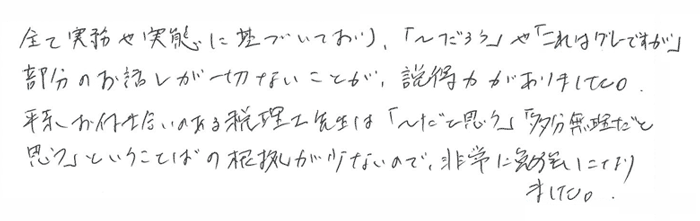 全て実務や実態に基づいており、「〜だろう」や「これはグレーですが」
部分のお話しが一切ないことが、説得力がありました。
平素、お付き合いのある税理士先生は「〜だと思う」「多分無理だと
思う」ということばの根拠が少ないので、非常に勉強になり
ました。